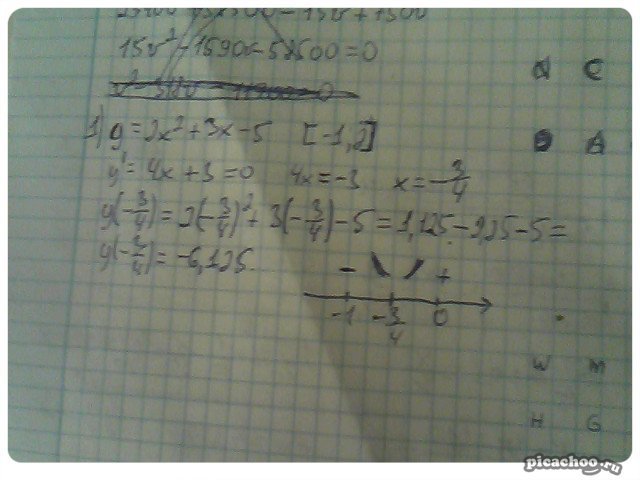 15v² - 1590 - 58500 = 0
1) y = 2x² + 3x - 5 [-1, 2]
y' = 4x + 3 = 0 4x = -3 x = -3/4
y(-3/4) = 2(-3/4)² + 3(-3/4) - 5 = 1,125 - 2,25 - 5 =
y(-3/4) = -6,125.
- +
-1 -3/4 0
C
A
W M
H G
picachoo.ru